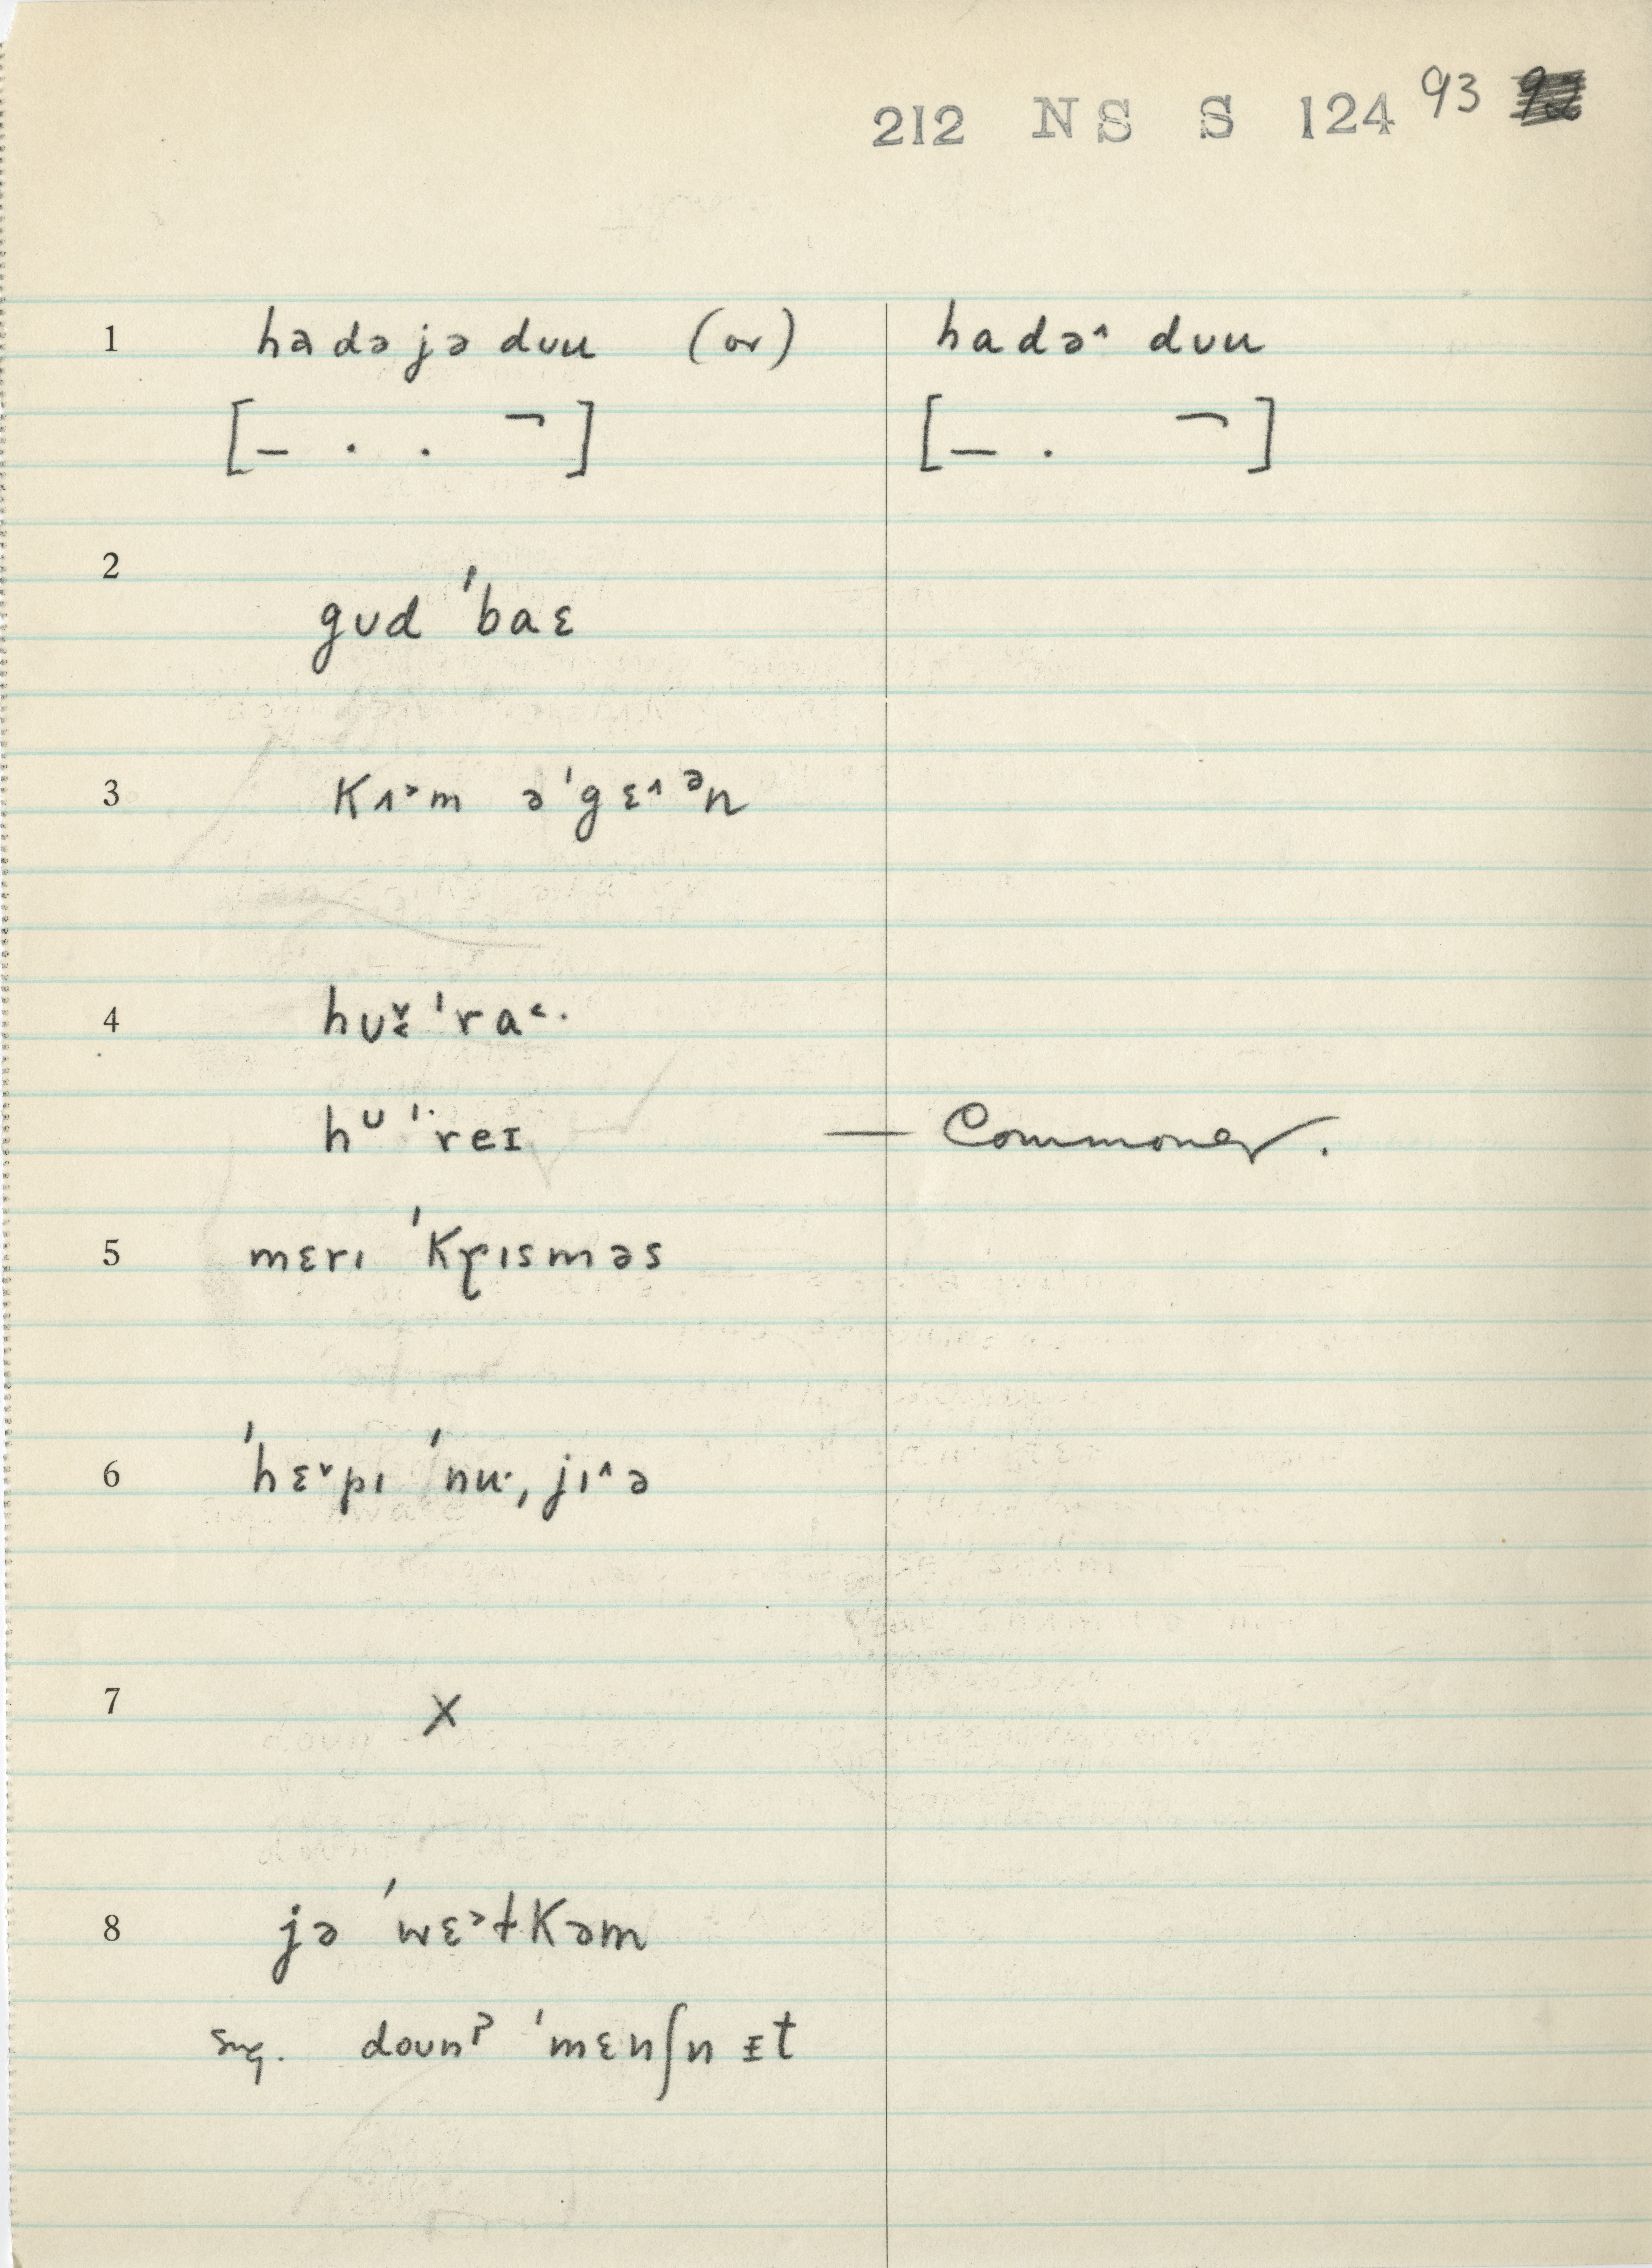 212 NS S 124 93
1 hadəjə dʊu (or) hadə˄ dʊu
[– . . ¬] [– . ¬]
2 gʊd ˈbaɛ
3 kʌ˃m əˈgɛ˄ᵊn
4 hʊ˅˂ ˈra˂·
hᶷ ˈreɪ — Commoner.
5 mɛrɪ ˈkr̥ɪsməs
6 ˈhɛ˅pɪ ˈnu·, jɪ˄ə
7 X
8 jə ˈwɛ˃ɫkəm
sug. doʊnˀ ˈmɛnʃn ɪt